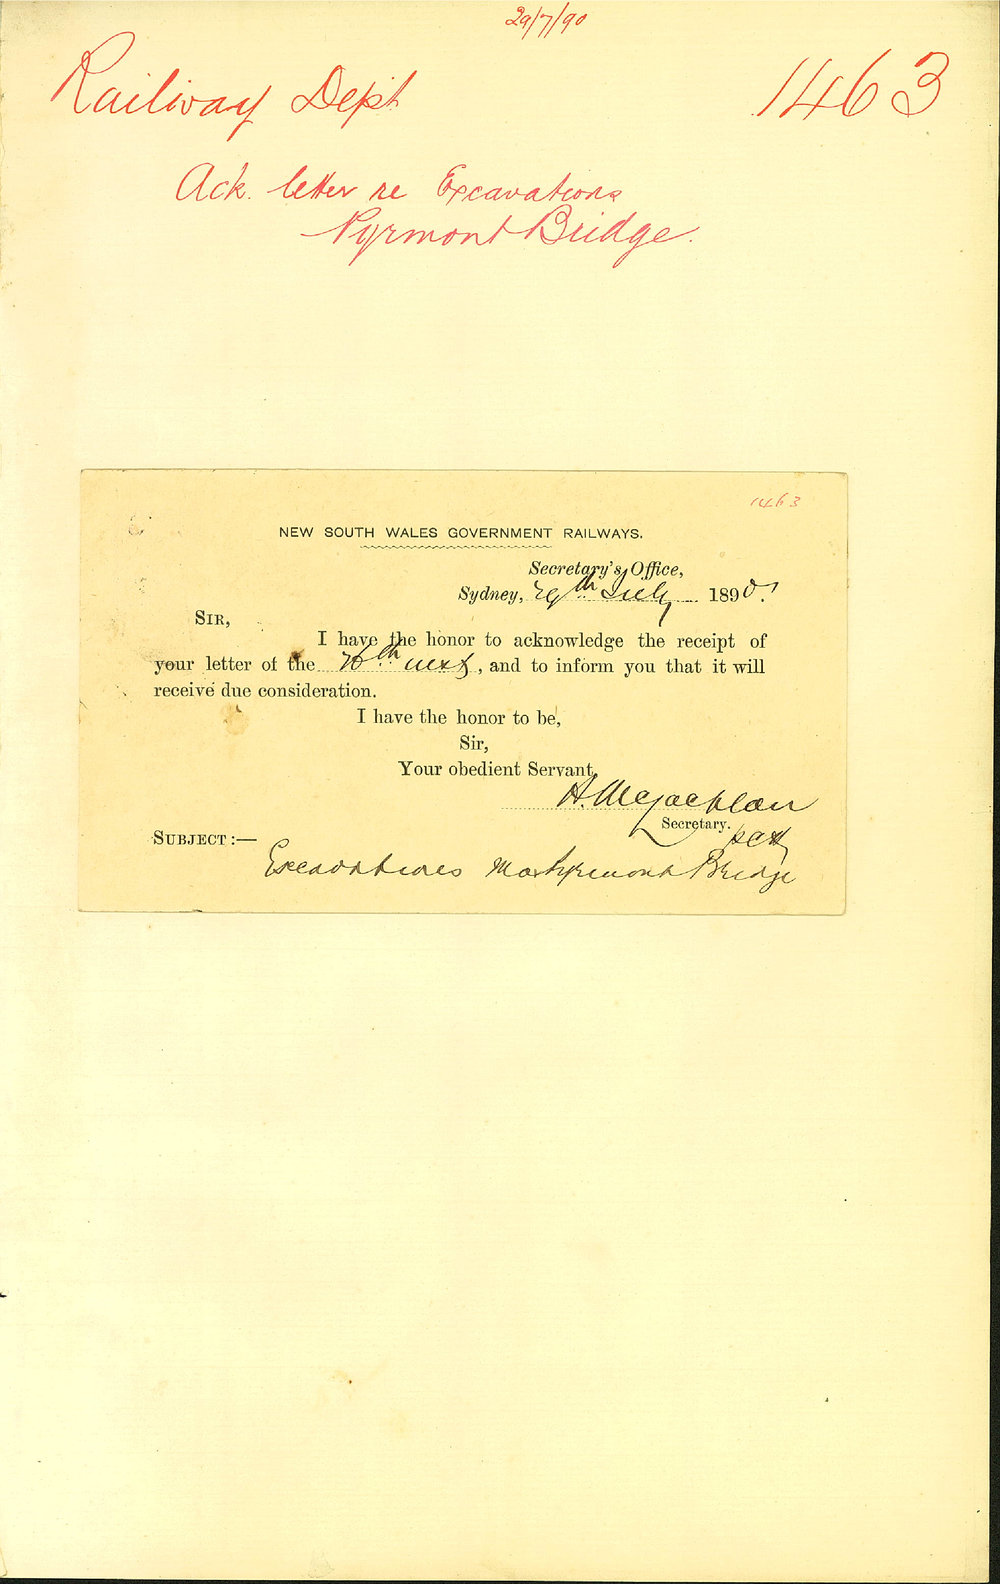 29/7/90
Railway Dept 1463
Ack. letter re Excavations
Pyrmont Bridge.
1463
NEW SOUTH WALES GOVERNMENT RAILWAYS.
Secretary's Office,
Sydney, 29th July 1890.
SIR,
I have the honor to acknowledge the receipt of
your letter of the 26th inst, and to inform you that it will
receive due consideration.
I have the honor to be,
Sir,
Your obedient Servant,
H. McLachlan
Secretary.
SUBJECT:—
Excavations Pyrmont Bridge